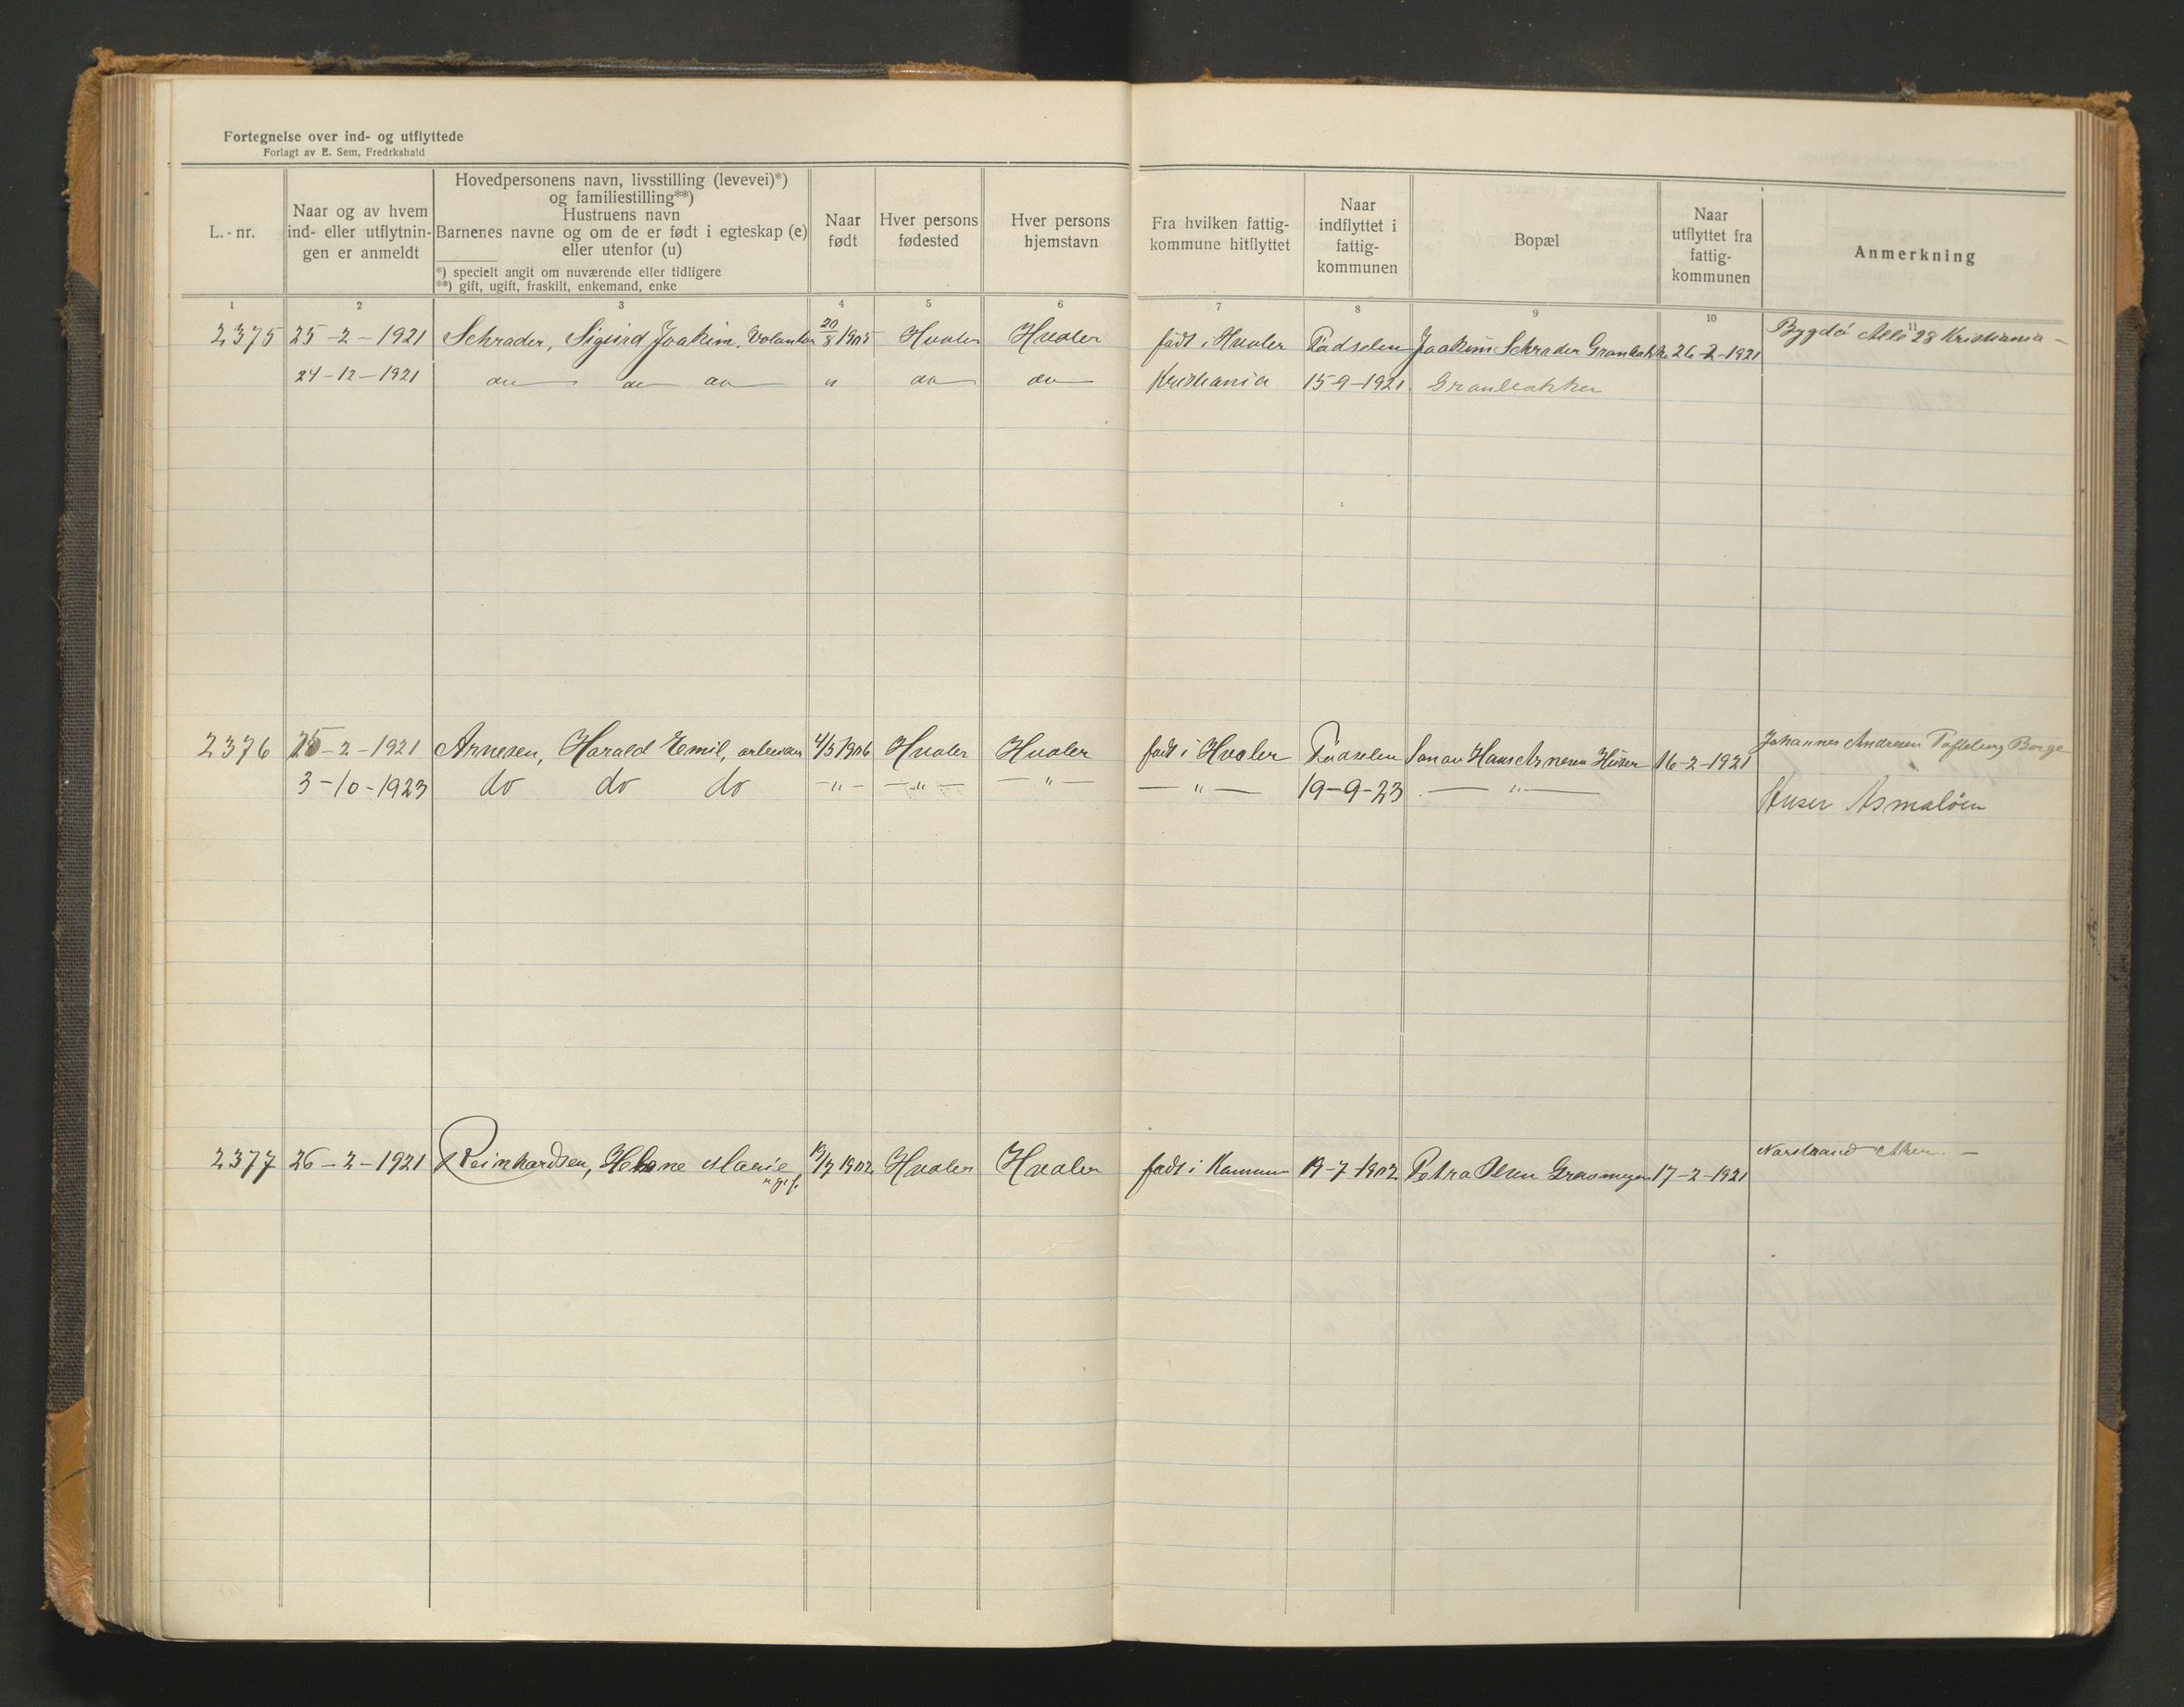 Fortegnelse over ind- og utflyttede
Forlagt av E. Sem, Fredrkshald
L.-nr.
Naar og av hvem ind- eller utflytnin- gen er anmeldt
Hovedpersonens navn, livsstilling (levevei)*)
og familiestilling**)
Hustruens navn
Barnenes navne og om de er født i egteskap (e)
eller utenfor (u)
*) specielt angit om nuværende eller tidligere
**) gift, ugift, fraskilt, enkemand, enke
Naar født
Hver persons fødested
Hver persons hjemstavn
Fra hvilken fattig- kommune hitflyttet
Naar indflyttet i fattig- kommunen
Bopæl
Naar utflyttet fra fattig- kommunen
Anmerkning
1 2 3 4 5 6 7 8 9 10 11
2375 25-2-1921 Schrader, Sigurd Joakim, Volantør 20/8 1905 Hvaler Hvaler født i Hvaler Fødselen Joakim Schrader Granbakken 26-2-1921 Bygdø Allé 28 Kristiania -
24-12-1921 do do do " do do Kristiania 15-9-1921 Granbakken
2376 25-2-1921 Arnesen, Harald Emil, 4/3 1906 Hvaler Hvaler født i Hvaler Fødselen Søn av Hans Arnesen Huser 16-2-1921 Johannes Andresen Tofteberg Borge
3-10-1923 do do do -"- -"- -"- -"- 19-9-23 -"- Huser Asmaløen
2377 26-2-1921 Reinhardsen, Helene Marie, ugift 19/7 1902 Hvaler Hvaler født i Kommun 19-7-1902 Petra Olsen 17-2-1921 Norstrand Aker. -